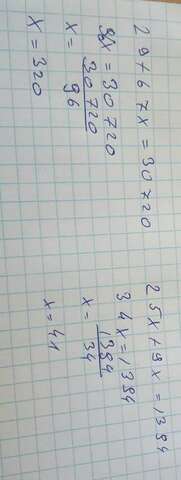 29+67x=30720
96x=30720
x=30720
96
x=320
25x+9x=1394
34x=1394
x=1394
34
x=41